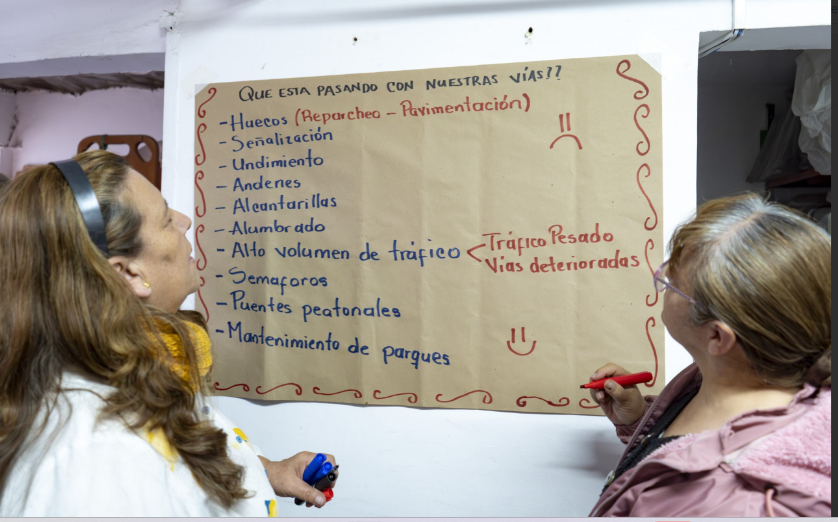 QUE ESTA PASANDO CON NUESTRAS VÍAS??
-Huecos (Reparcheo - Pavimentación)
-Señalización
-Undimiento
-Andenes
-Alcantarillas
-Alumbrado
-Alto volumen de tráfico < Tráfico Pesado
Vías deterioradas
-Semaforos
-Puentes peatonales
-Mantenimiento de parques